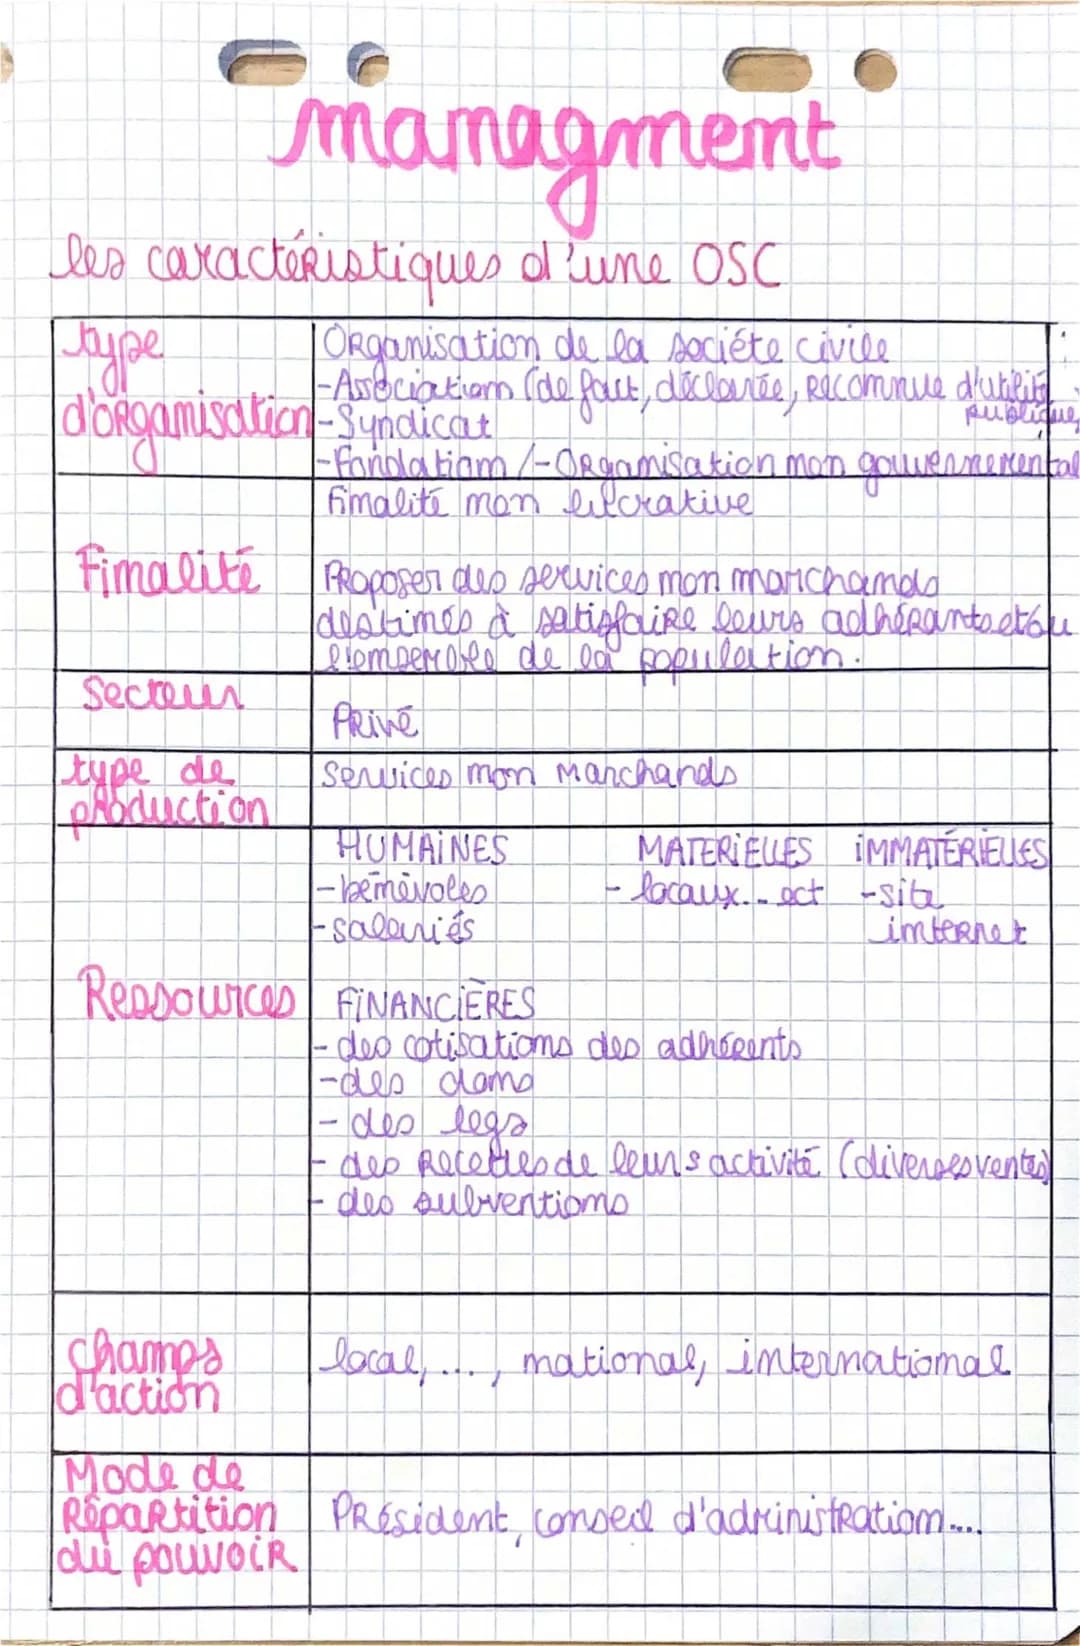 managment
les caractéristiques d'une OSC
type d'organisation
Organisation de la sociéte civile
-Association (de fact, déclarée, reconnue d'utilité publique,
-Syndicat
-Fondation /-Organisation non gouvernemental
Finalité
Finalité non lucrative
Proposer des services non marchands
destinés à satisfaire leurs adhérants et/ou
l'ensemble de la population.
Secteur
Privé
type de production
Services non Marchands
Ressources
HUMAINES
-bénévoles
-salariés
MATERIELLES
- locaux... ect
IMMATÉRIELLES
-site
internet
FINANCIÈRES
- des cotisations des adhérents
-des dons
- des legs
- des recettes de leurs activité (diverses ventes)
- des subventions
champs d'action
local, ..., national, international
Mode de
Répartition
du pouvoir
Président, conseil d'administration....